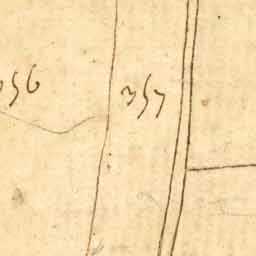 356
357